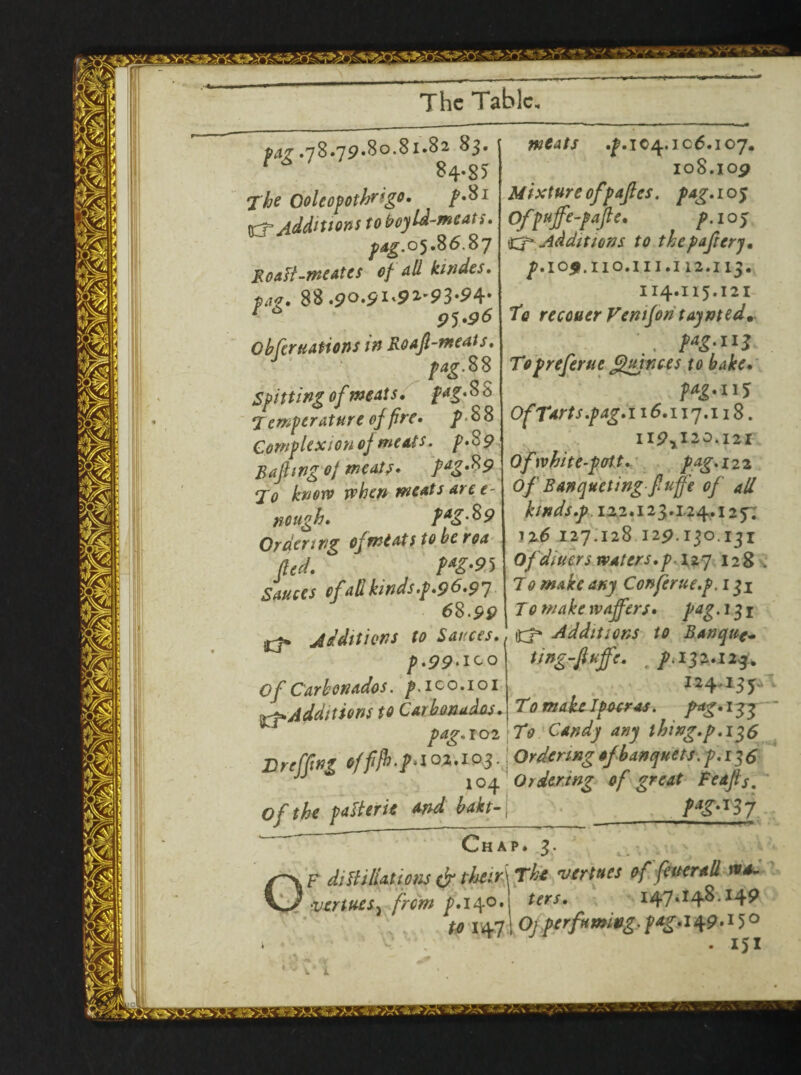 The Table.
pag .78.79.80.81.82 83.
84.85
The Ooleopothrigo. p.81
☞ Additions to boyld-meats.
pag.05.86.87
Roast-meates of all kindes.
pag. 88.90.91.92.93.94.
95.96
Observations in Roast-meats.
pag.88
Spitting of meats. pag.88
Temperature of fire. p.88
Complexion of meats. p.89
Basting of meats. pag.89
To know when meats are e-
nough. pag.89
Ordering of meats to be roa
sted. pag.95
Sauces of all kinds.p.96.97
68.99
☞ Additions to Sauces.
p.99.100
Of Carbonados. p.100.101
☞ Additions to Carbonados.
pag.102
Dressing of fish.p.102.103.
104
Of the pasterie and bakt-
meats .p.104.106.107.
108.109
Mixture of pastes. pag.105
Of puffe-paste. p.105
☞ Additions to the pastery.
p.109.110.111.112.113.
114.115.121
To recover Venison taynted.
pag.113
To preserue Quinces to bake.
pag.115
Of Tarts.pag.116.117.118.
119,120.121
Of white-pott. pag.122
Of Banqueting stuffe of all
kinds.p.122.123.124.125.
126 127.128 129.130.131
Of diuers waters.p.127 128
To make any Conserue.p.131
To make waffers. pag.131
☞ Additions to Banque-
ting-stuffe. p.132.123.
124.135
To make Ipocras. pag.133
To Candy any thing.p.136
Ordering of banquets.p.136
Ordering of great Feasts.
pag.137
Chap. 3.
OF distillations & their
vertues, from p.140.
to 147
The vertues of seuerall wa-
ters. 147.148.149
Of perfuming. pag.149.150
151